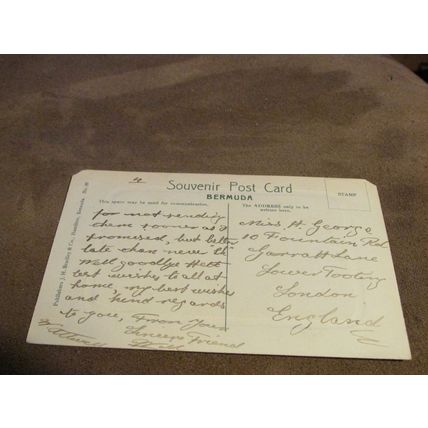 Souvenir Post Card
BERMUDA
This space may be used for communication.
The ADDRESS only to be
written here.
STAMP
for not sending
these sooner as I
promised, but better
late than never "th"
Well goodbye
best wishes to all at
home, my best wishes
and kind regards
to you, From Your
Sincere Friend
Will
Miss H. George
10 Fountain Rd.
Garratt Lane
Lower Tooting
London
England
Publishers J. H. Bradley & Co., Hamilton, Bermuda